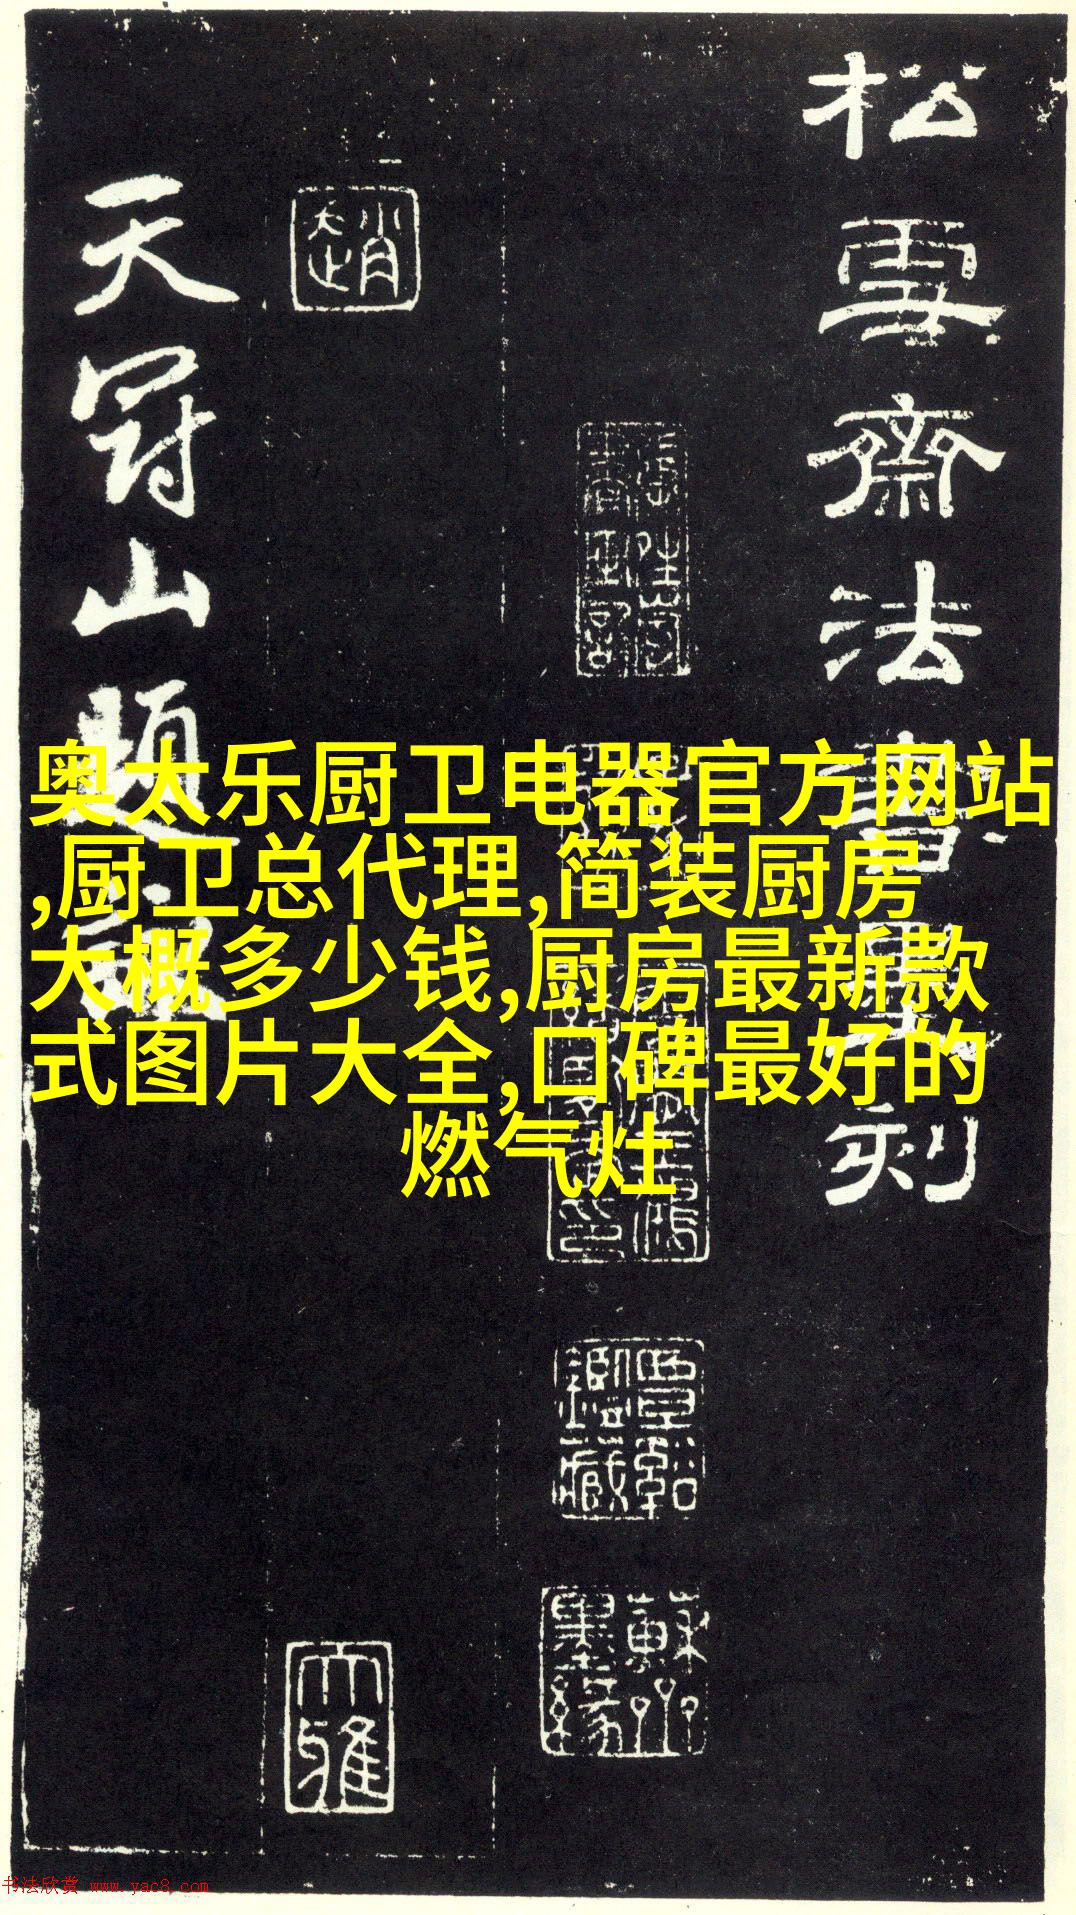 松雪斋法书墨刻
趙
天冠山題詠
大雅
鑑藏
蘇
墨緣
奥太乐厨卫电器官方网站
,厨卫总代理,简装厨房
大概多少钱,厨房最新款
式图片大全,口碑最好的
燃气灶
书法欣赏 www.yac8.com